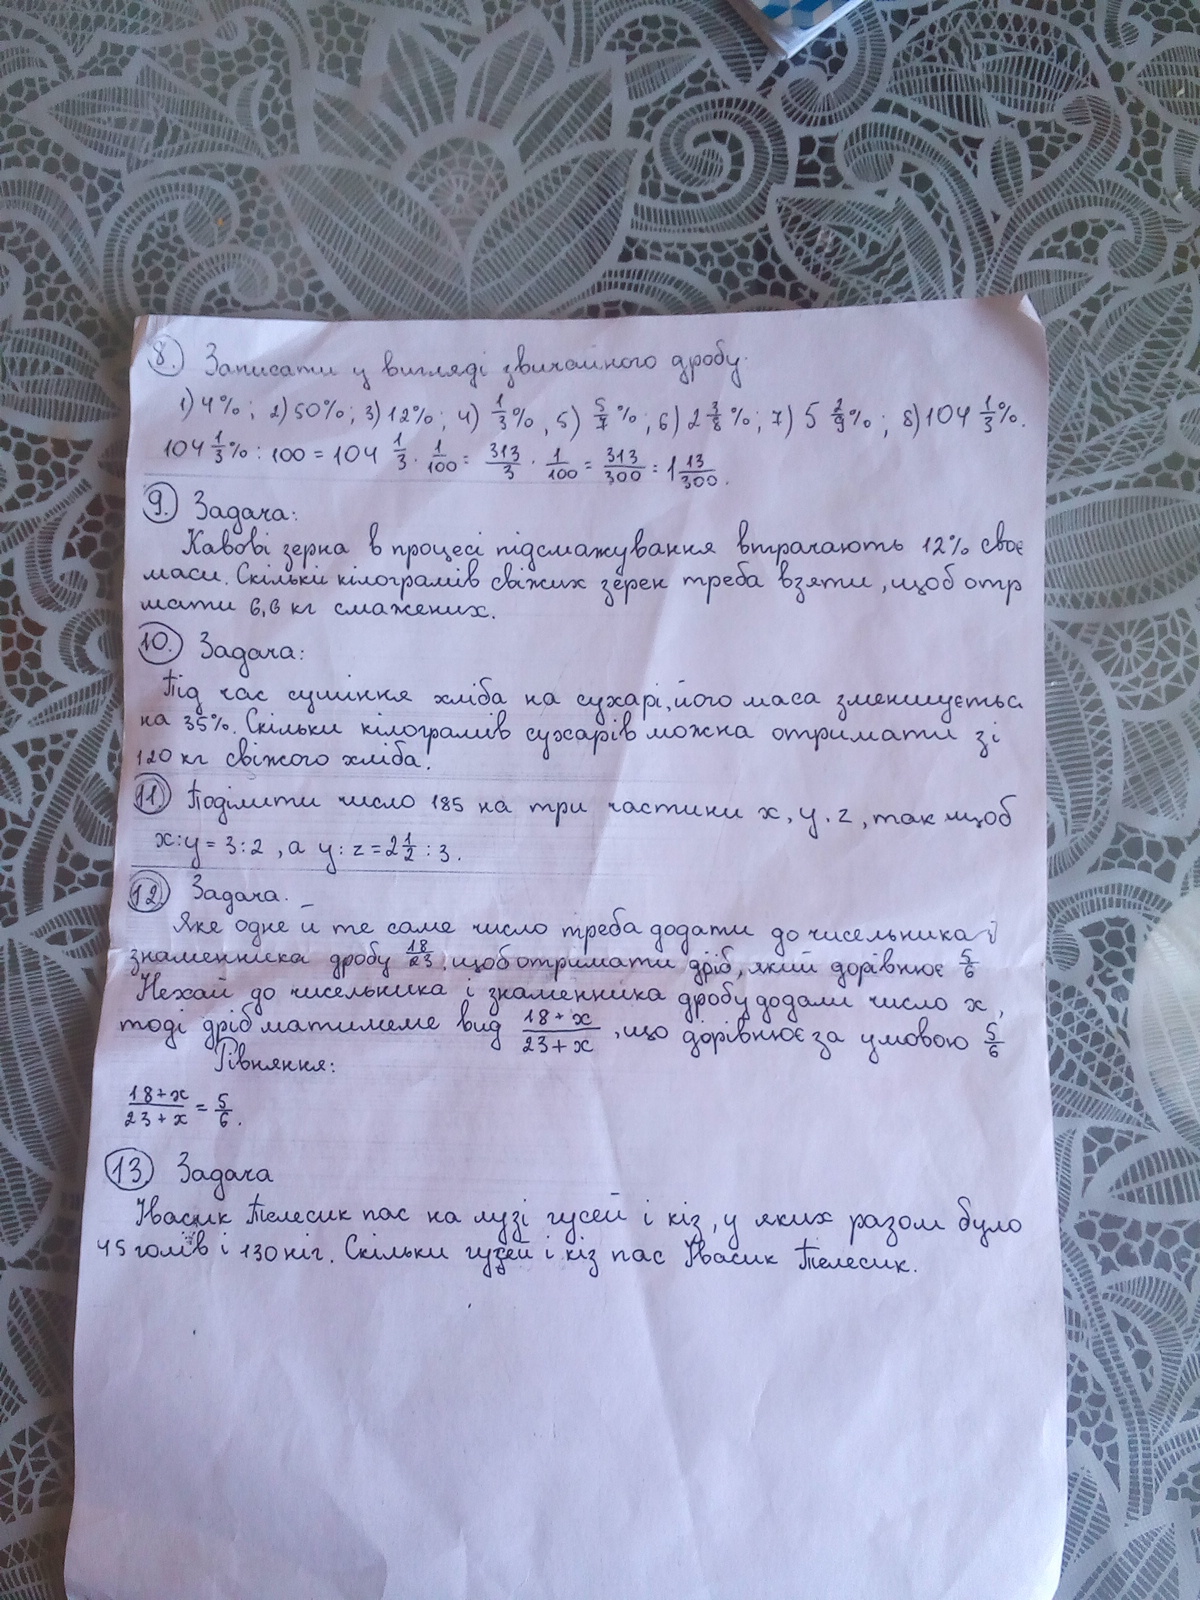 8. Записати у вигляді звичайного дробу.
1) 4%; 2) 50%; 3) 12%; 4) 1/3%, 5) 5/7%; 6) 2 3/8%; 7) 5 2/9%; 8) 104 1/3%.
104 1/3% : 100 = 104 1/3 · 1/100 = 313/3 · 1/100 = 313/300 = 1 13/300.
9. Задача:
Кавові зерна в процесі підсмажування втрачають 12% своє
маси. Скільки кілограмів свіжих зерен треба взяти, щоб отр
мати 6,6 кг смажених.
10. Задача:
Під час сушіння хліба на сухарі, його маса зменшуєтьс
на 35%. Скільки кілограмів сухарів можна отримати зі
120 кг свіжого хліба.
11 Поділити число 185 на три частини x, y, z, так щоб
x:y = 3:2, а y:z = 2 1/2 : 3.
12. Задача.
Яке одне й те саме число треба додати до чисельника і
знаменника дробу 18/23, щоб отримати дріб, який дорівнює 5/6
Нехай до чисельника і знаменника дробу додали число x,
тоді дріб матимеме вид 18+x/23+x, що дорівнює за умовою 5/6
Рівняння:
18+x/23+x = 5/6.
13 Задача
Івасик Телесик пас на лузі гусей і кіз, у яких разом було
45 голів і 130 ніг. Скільки гусей і кіз пас Івасик Телесик.